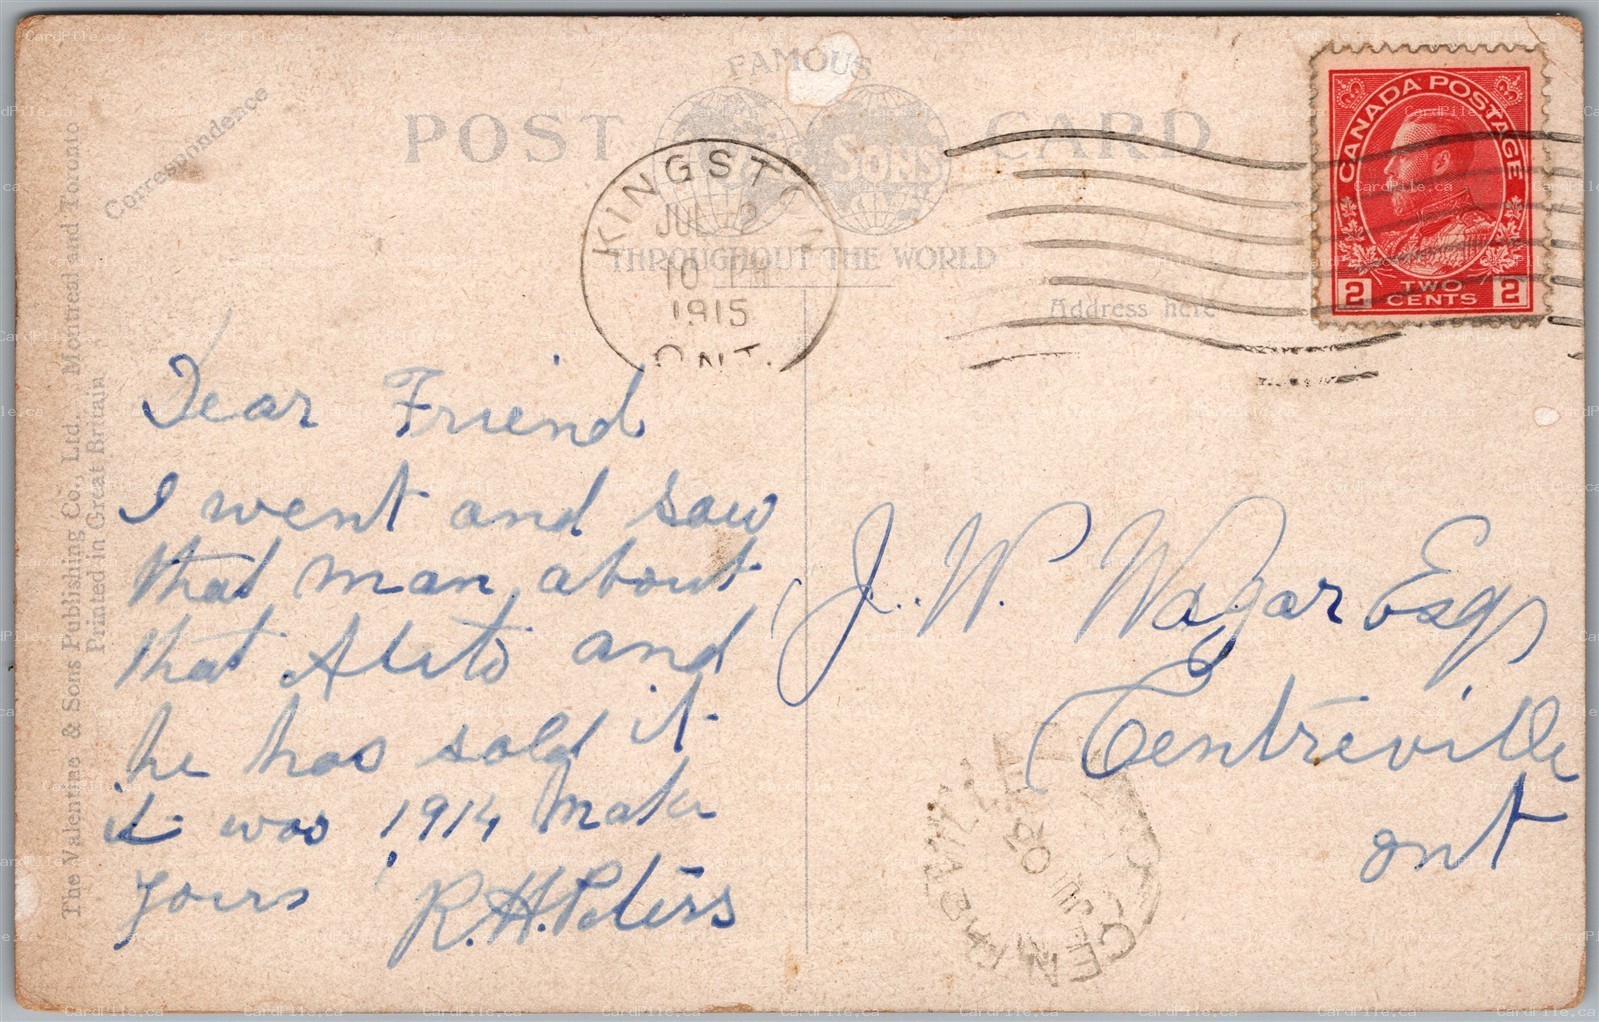 Correspondence
FAMOUS
POST CARD
SONS
THROUGHOUT THE WORLD
Address here
The Valentine & Sons Publishing Co., Ltd. Montreal and Toronto
Printed in Great Britain
KINGSTON
JUL 2
10 PM
1915
ONT.
CANADA POSTAGE
2 TWO CENTS 2
Dear Friend
I went and saw
that man about
that Auto and
he has sold it
it was 1914 Make
Yours R.H. Peters
J. W. Wagar Esq
Centreville
Ont
CardPile.ca